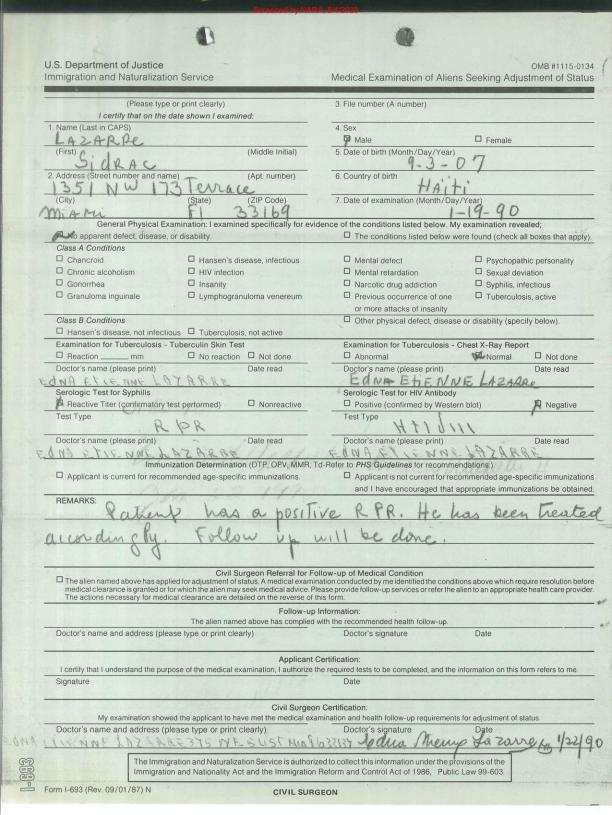 U.S. Department of Justice
Immigration and Naturalization Service
OMB #1115-0134
Medical Examination of Aliens Seeking Adjustment of Status
(Please type or print clearly)
I certify that on the date shown I examined:
3. File number (A number)
1. Name (Last in CAPS)
LAZARRE
(First) (Middle Initial)
SidRAC
4. Sex
Male Female
5. Date of birth (Month/Day/Year)
9-3-07
2. Address (Street number and name) (Apt. number)
1351 NW 173 Terrace
6. Country of birth
Haïti
(City) (State) (ZIP Code)
Miami Fl 33169
7. Date of examination (Month/Day/Year)
1-19-90
General Physical Examination: I examined specifically for evidence of the conditions listed below. My examination revealed;
No apparent defect, disease, or disability.
The conditions listed below were found (check all boxes that apply).
Class A Conditions
Chancroid Hansen's disease, infectious Mental defect Psychopathic personality
Chronic alcoholism HIV infection Mental retardation Sexual deviation
Gonorrhea Insanity Narcotic drug addiction Syphilis, infectious
Granuloma inguinale Lymphogranuloma venereum Previous occurrence of one or more attacks of insanity Tuberculosis, active
Class B Conditions
Other physical defect, disease or disability (specify below).
Hansen's disease, not infectious Tuberculosis, not active
Examination for Tuberculosis - Tuberculin Skin Test
Examination for Tuberculosis - Chest X-Ray Report
Reaction mm No reaction Not done
Abnormal Normal Not done
Doctor's name (please print) Date read
EDNA ETIENNE LAZARRE
Doctor's name (please print) Date read
EDNA EtiENNE LAZARRE
Serologic Test for Syphilis
Serologic Test for HIV Antibody
Reactive Titer (confirmatory test performed) Nonreactive
Positive (confirmed by Western blot) Negative
Test Type
RPR
Test Type
Doctor's name (please print) Date read
EDNA ETIENNE LAZARRE
Doctor's name (please print) Date read
EDNA ETIENNE LAZARRE
Immunization Determination (DTP, OPV, MMR, Td-Refer to PHS Guidelines for recommendations.)
Applicant is current for recommended age-specific immunizations.
Applicant is not current for recommended age-specific immunizations
and I have encouraged that appropriate immunizations be obtained.
REMARKS:
Patient has a positive RPR. He has been treated
accordingly. Follow up will be done.
Civil Surgeon Referral for Follow-up of Medical Condition
The alien named above has applied for adjustment of status. A medical examination conducted by me identified the conditions above which require resolution before
medical clearance is granted or for which the alien may seek medical advice. Please provide follow-up services or refer the alien to an appropriate health care provider.
The actions necessary for medical clearance are detailed on the reverse of this form.
Follow-up Information:
The alien named above has complied with the recommended health follow-up.
Doctor's name and address (please type or print clearly) Doctor's signature Date
Applicant Certification:
I certify that I understand the purpose of the medical examination, I authorize the required tests to be completed, and the information on this form refers to me.
Signature Date
Civil Surgeon Certification:
My examination showed the applicant to have met the medical examination and health follow-up requirements for adjustment of status.
Doctor's name and address (please type or print clearly) Doctor's signature Date
EDNA ETIENNE LAZARRE Lazarre 1/22/90
The Immigration and Naturalization Service is authorized to collect this information under the provisions of the
Immigration and Nationality Act and the Immigration Reform and Control Act of 1986, Public Law 99-603.
I-693
Form I-693 (Rev. 09/01/87) N
CIVIL SURGEON